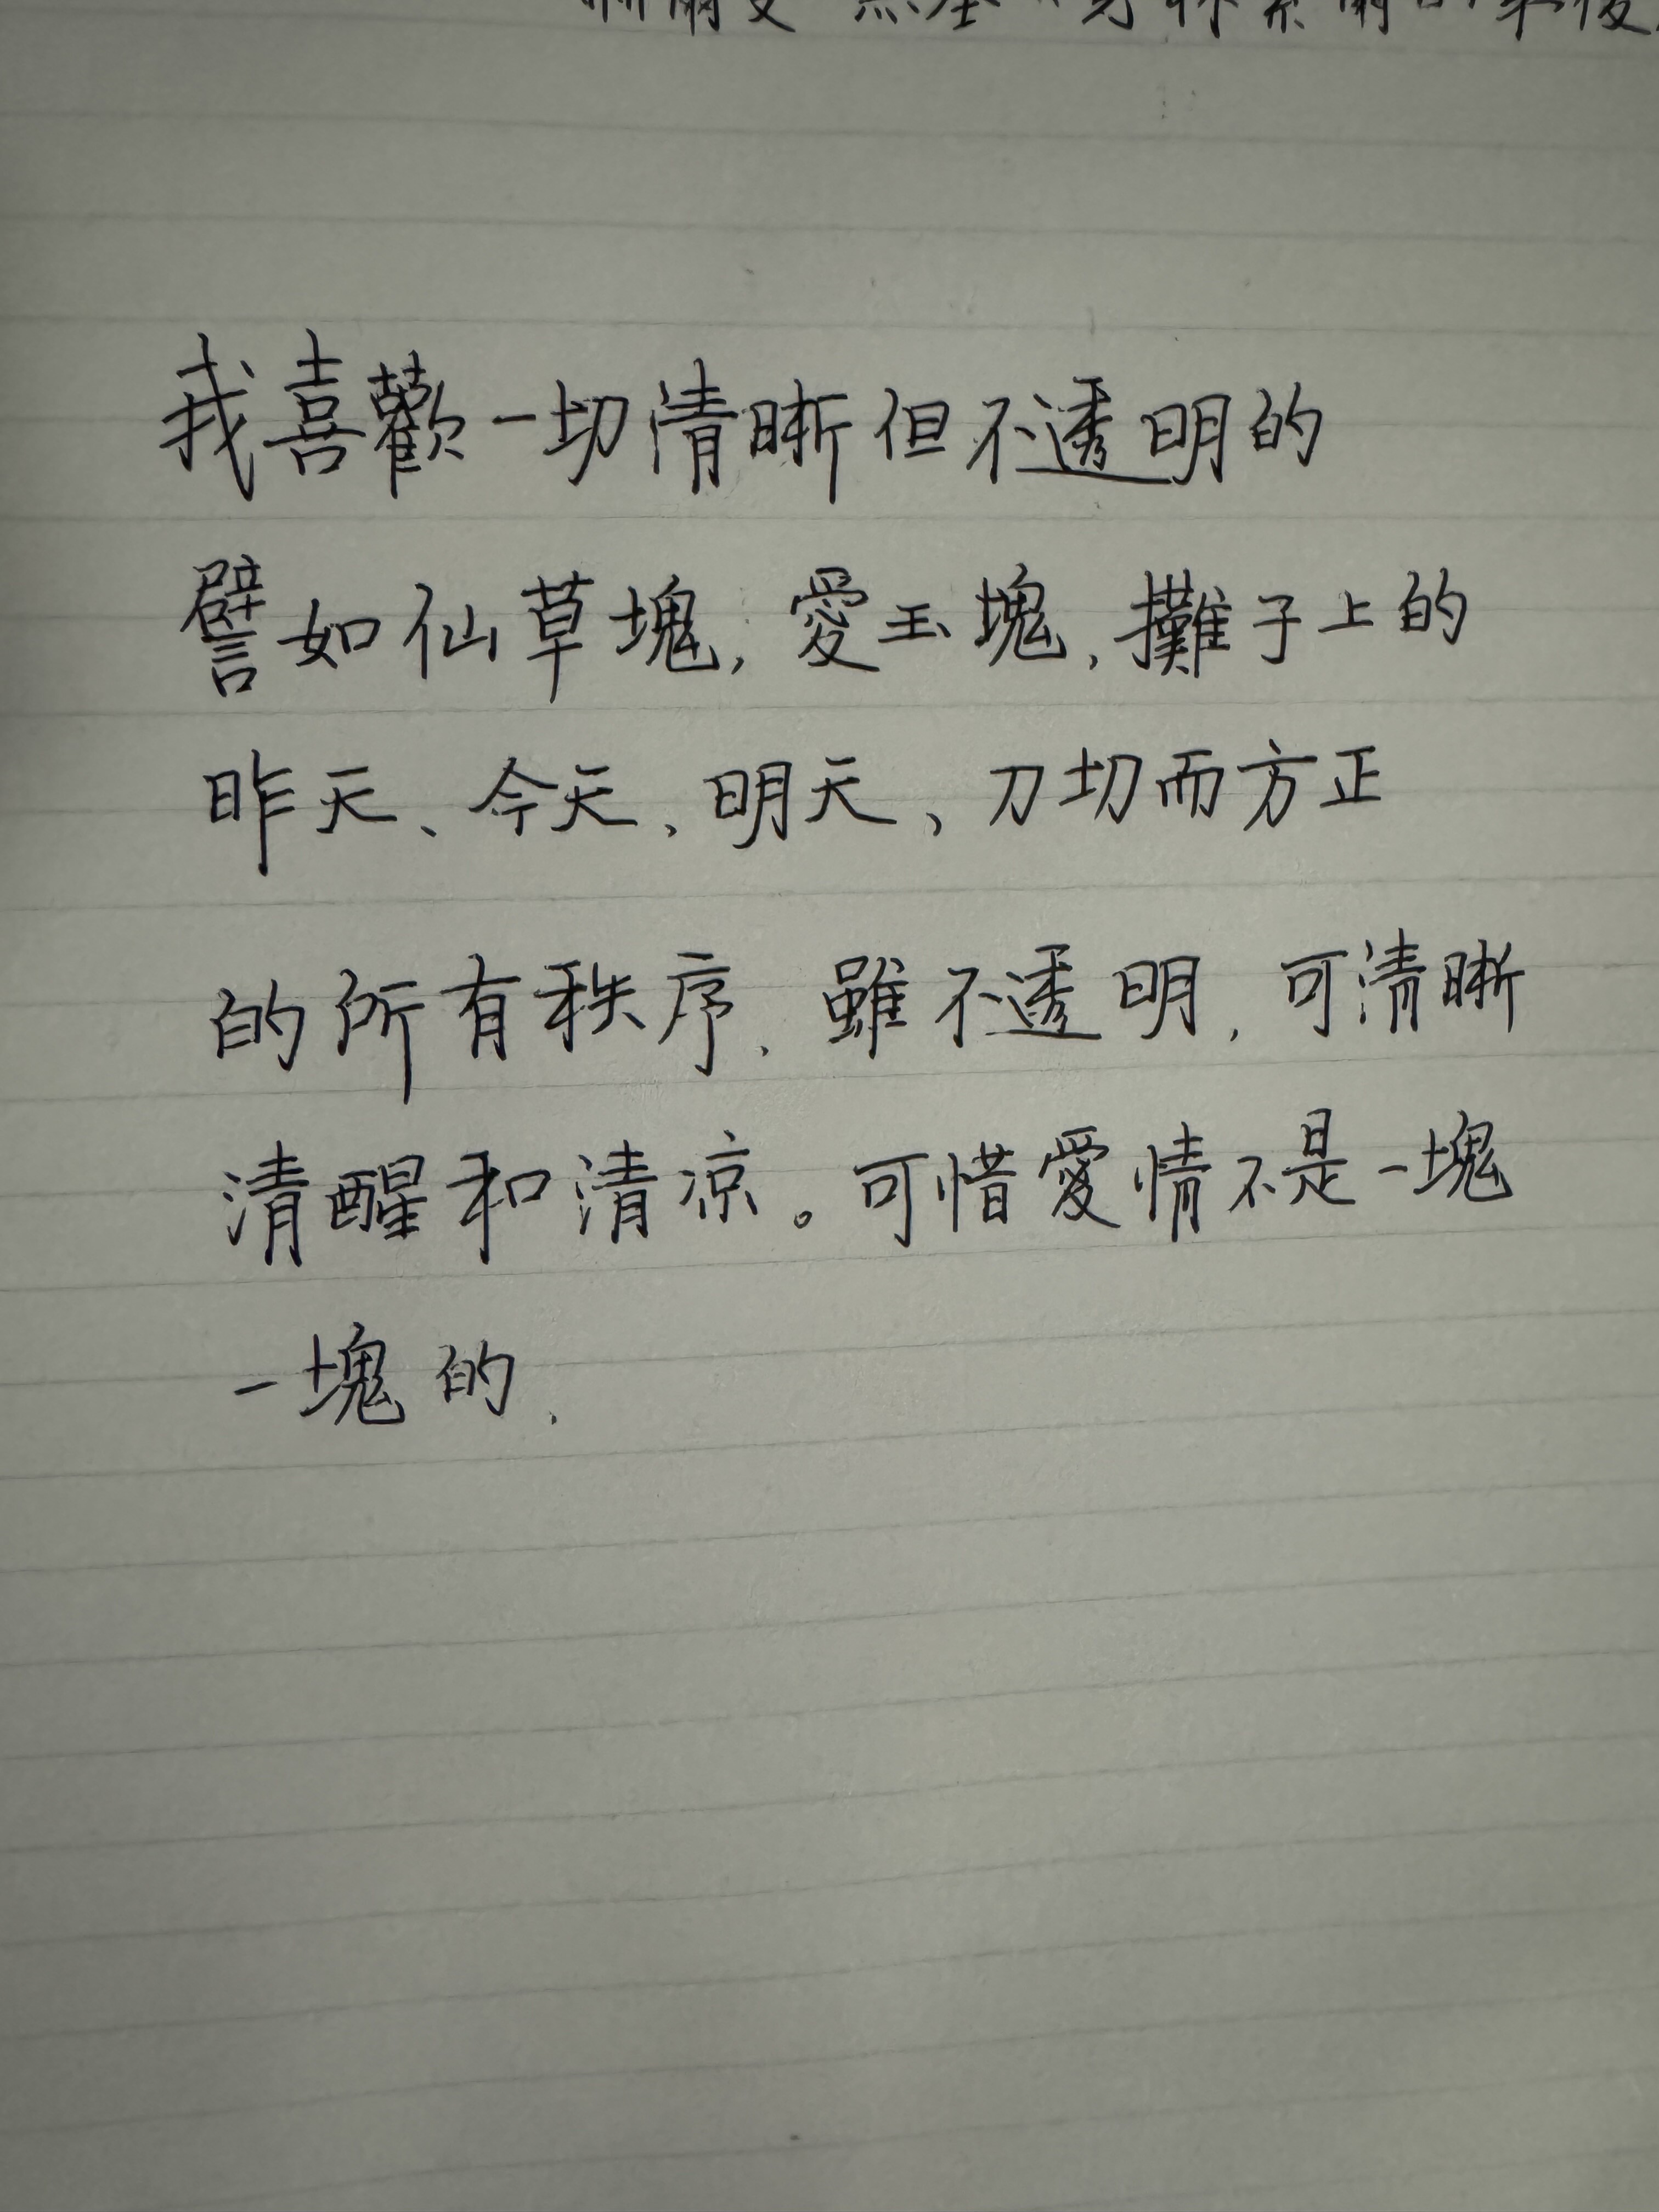 我喜歡一切清晰但不透明的
譬如仙草塊,愛玉塊,攤子上的
昨天、今天、明天、刀切而方正
的所有秩序、雖不透明,可清晰
清醒和清凉。可惜愛情不是一塊
一塊的、